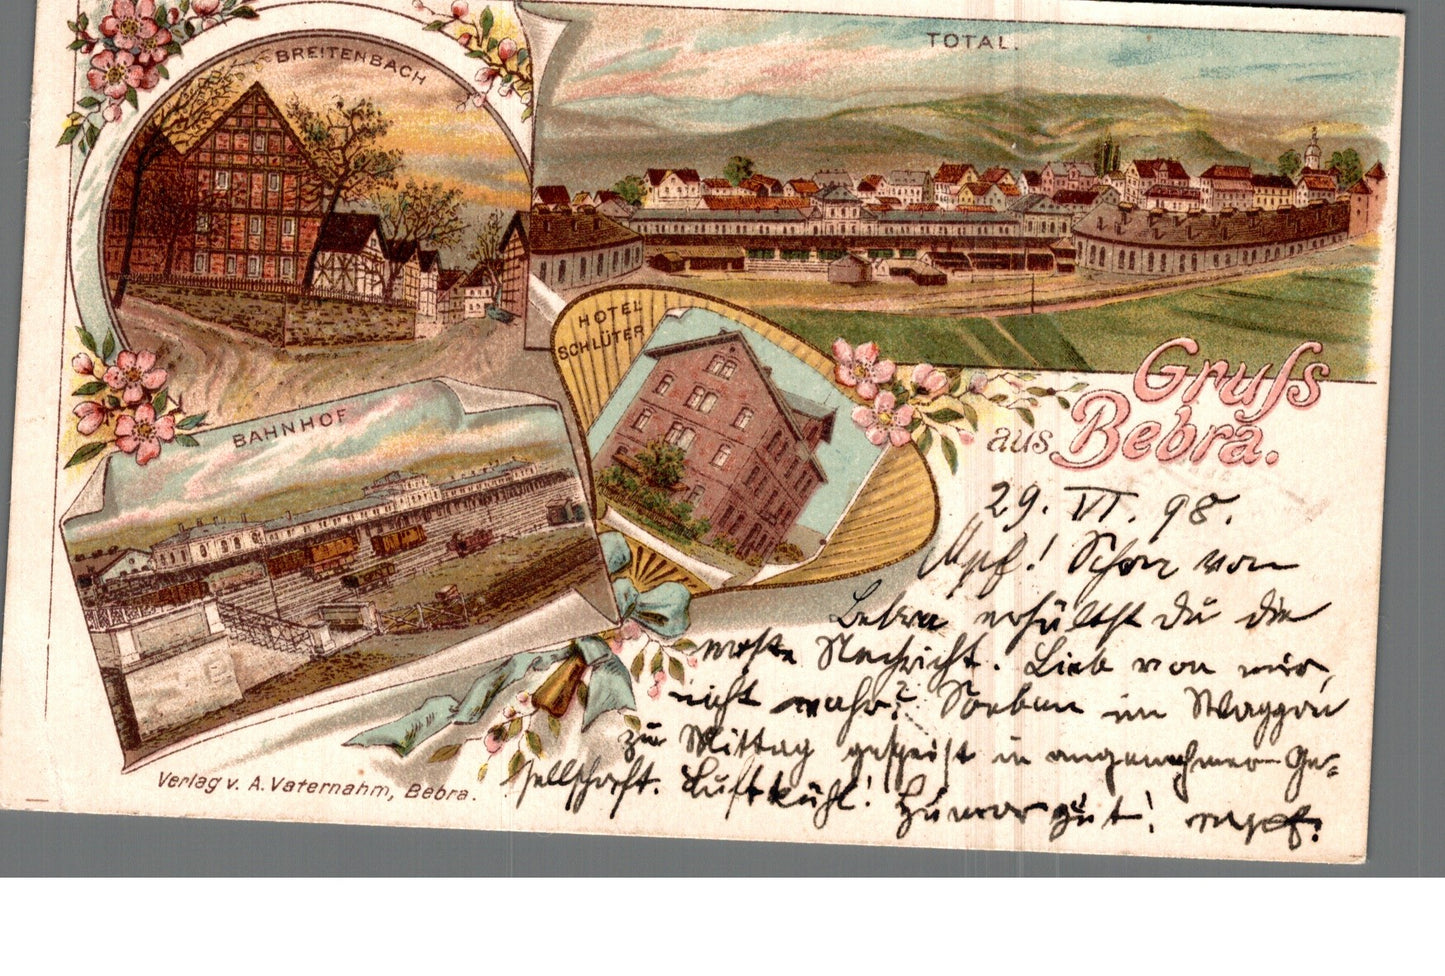 BREITENBACH
TOTAL.
HOTEL
SCHLÜTER
BAHNHOF
Gruss
aus Bebra.
29. VI. 98.
Schon von
Bebra erhältst Du die
erste Nachricht. Lieb von mir,
nicht wahr? Soeben im Waggon
zu Mittag gespeist in angenehmer Ge-
sellschaft. Luft kühl! Humor gut!
Verlag v. A. Vaternahm, Bebra.